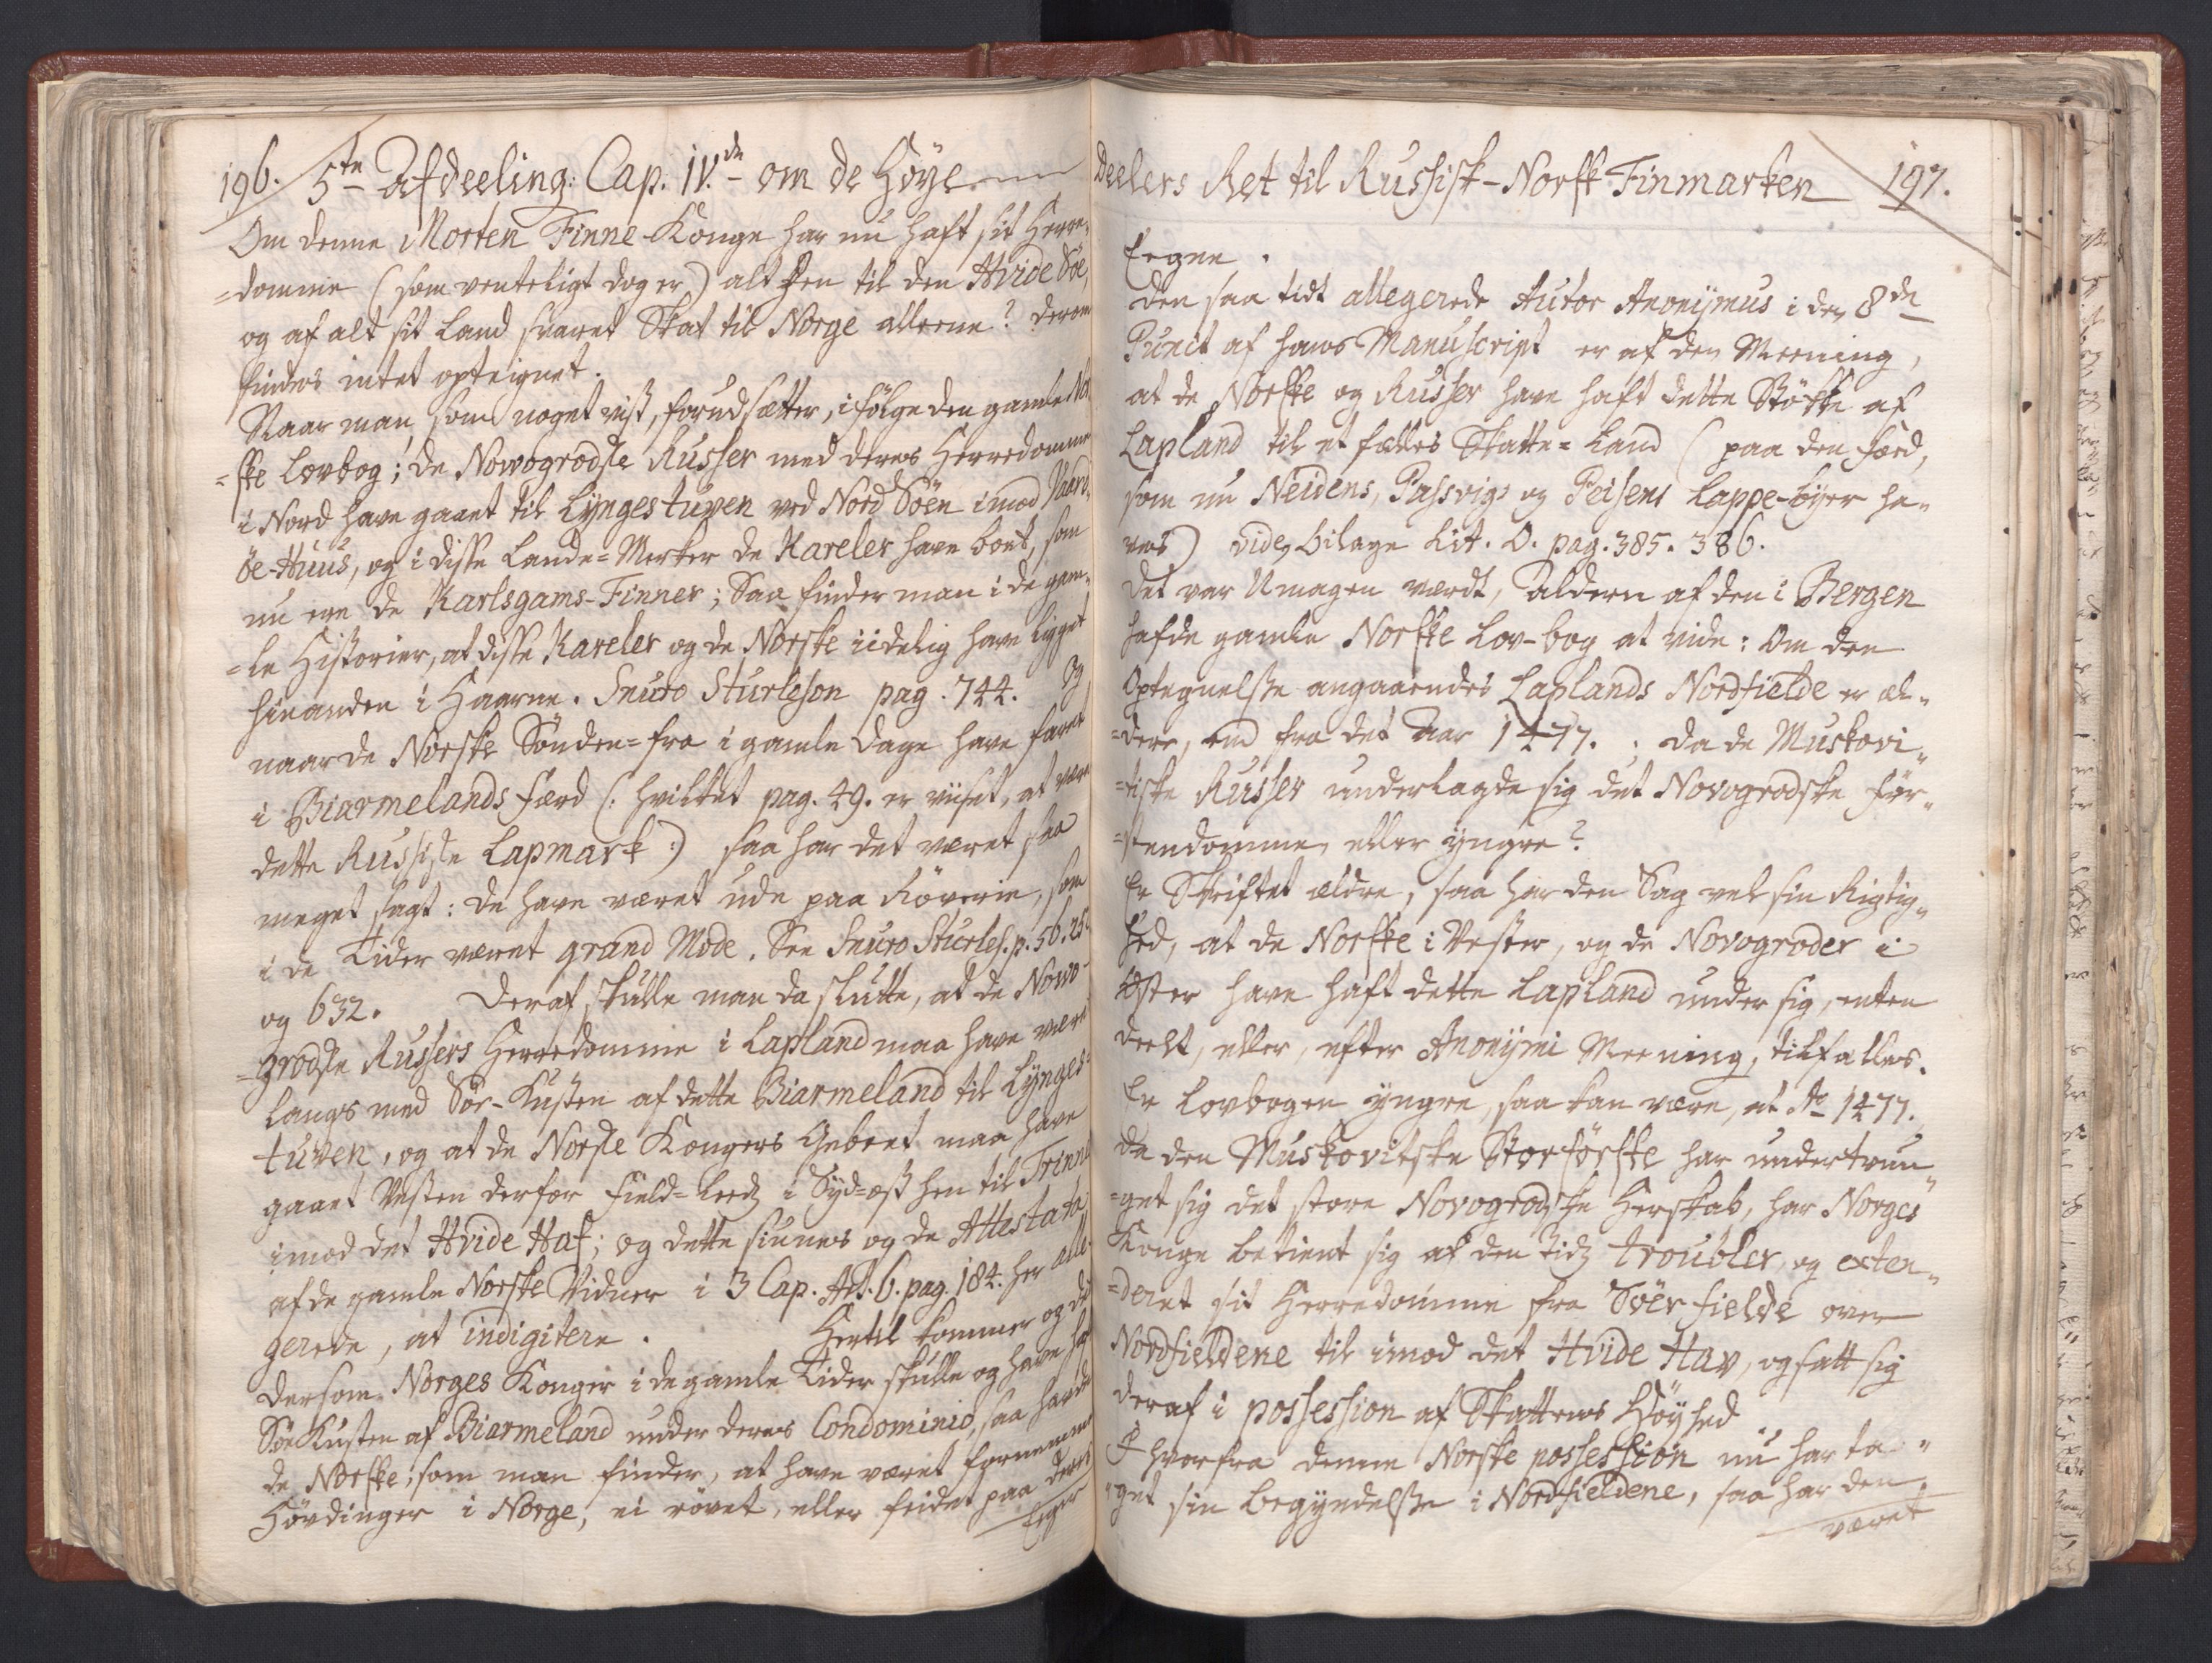 196. 5te Afdeeling: Cap. IV.de om de Höye
Om denne Morten Finne-Konge har nu haft sit Herre-
=domme (som venteligt dog er) alt hen til den Hvide Söe,
og af alt sit Land svaret Skat til Norge alleene? derom
findes intet opteignet.
Naar man, som noget vist, forudsætter, i fölge den gamle Nor
=ske Lovbog; de Novogrodske Russer med deres Herredomme
i Nord have gaaet til Lyngestuven ved Nord Söen imod Vaard-
öe-Huus, og i disse Lande-Merker de Kareler have boet, som
nu ere de Karlsgams-Finner; Saa finder man i de gam-
=le Historier, at disse Kareler og de Norske iidelig have ligget
hinanden i Haarene. Snuro Sturleson pag. 744. Og
naar de Norske Sönden-fra i gamle Dage have faret
i Biarmelands færd (: hvilket pag. 49. er viiset, at være
dette Russiske Lapmark :) saa har det været saa
meget sagt: de have været ude paa Röverie, som
i de Tider været grand Mode. See Snuro Sturles. p. 56. 25
og 632. Deraf skulle man da slutte, at de Novo-
=grodske Russers Herredomme i Lapland maa have været
langs med Sör-Kusten af dette Biarmeland til Lynges-
tuven, og at de Norske Kongers Gebeet maa have
gaaet Vesten derfor Field-Leedz i Syd-ost hen til Trinnes
imod det Hvide Haf; og dette siunes og de Attestata
af de gamle Norske Vidner i 3 Cap. Art. 6. pag. 184. her alle-
gerede, at indigitere. Hertil kommer og det
dersom Norges Konger i de gamle Tider skulle og have haft
Söe Kusten af Biarmeland under deres Condominio, saa havde
de Norske, som man finder, at have været fornemme
Hövdinger i Norge, ei rövet, eller feidet paa deres
Eegne
Deelers Ret til Russisk-Norsk Finmarken 197.
Eegne.
Den saa tidt allegerede Autor Anonymus i den 8de
Punct af hans Manuscript er af den Meening,
at de Norske og Russer have haft dette Stökke af
Lapland til et fælles Skatte-Land (paa den færd,
som nu Neidens, Passvigs og Peisens Lappe-byer ha-
ves) vide Bilage Lit. O. pag. 385. 386.
Det var Umagen værdt, Alderen af den i Bergen
hafde gamle Norske Lov-bog at vide: Om den
Optegnelse angaaendes Laplands Nordfielde er æl-
=dere, end fra det Aar 1477. da de Muskovi-
=tiske Russer underlagde sig det Novogrodske För-
=stendomme, eller yngre?
Er Skriftet ældre, saa har den Sag vel sin Rigtig-
hed, at de Norske i Vester, og de Novogroder i
Öster have haft dette Lapland under sig, enten
deelt, eller, efter Anonymi Meening, tilfælles.
Er Lovbogen yngre, saa kan være, at Ao 1477.
da den Muskovitske Storförste har undertvun-
=get sig det store Novogrodske Herskab, har Norges
Konge betient sig af den Tidz troubler, og exten-
=deret sit Herredomme fra Söer fielde over
Nordfieldene til imod det Hvide Hav, og satt sig
deraf i possession af Skattens Höyhed
I hvorfra denne Norske possession nu har ta-
=get sin Begyndelse i Nordfieldene, saa har den
været